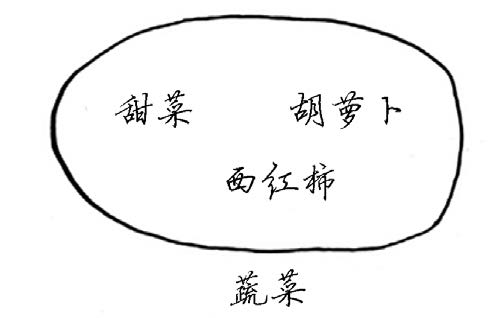 甜菜 胡萝卜
西红柿
蔬菜